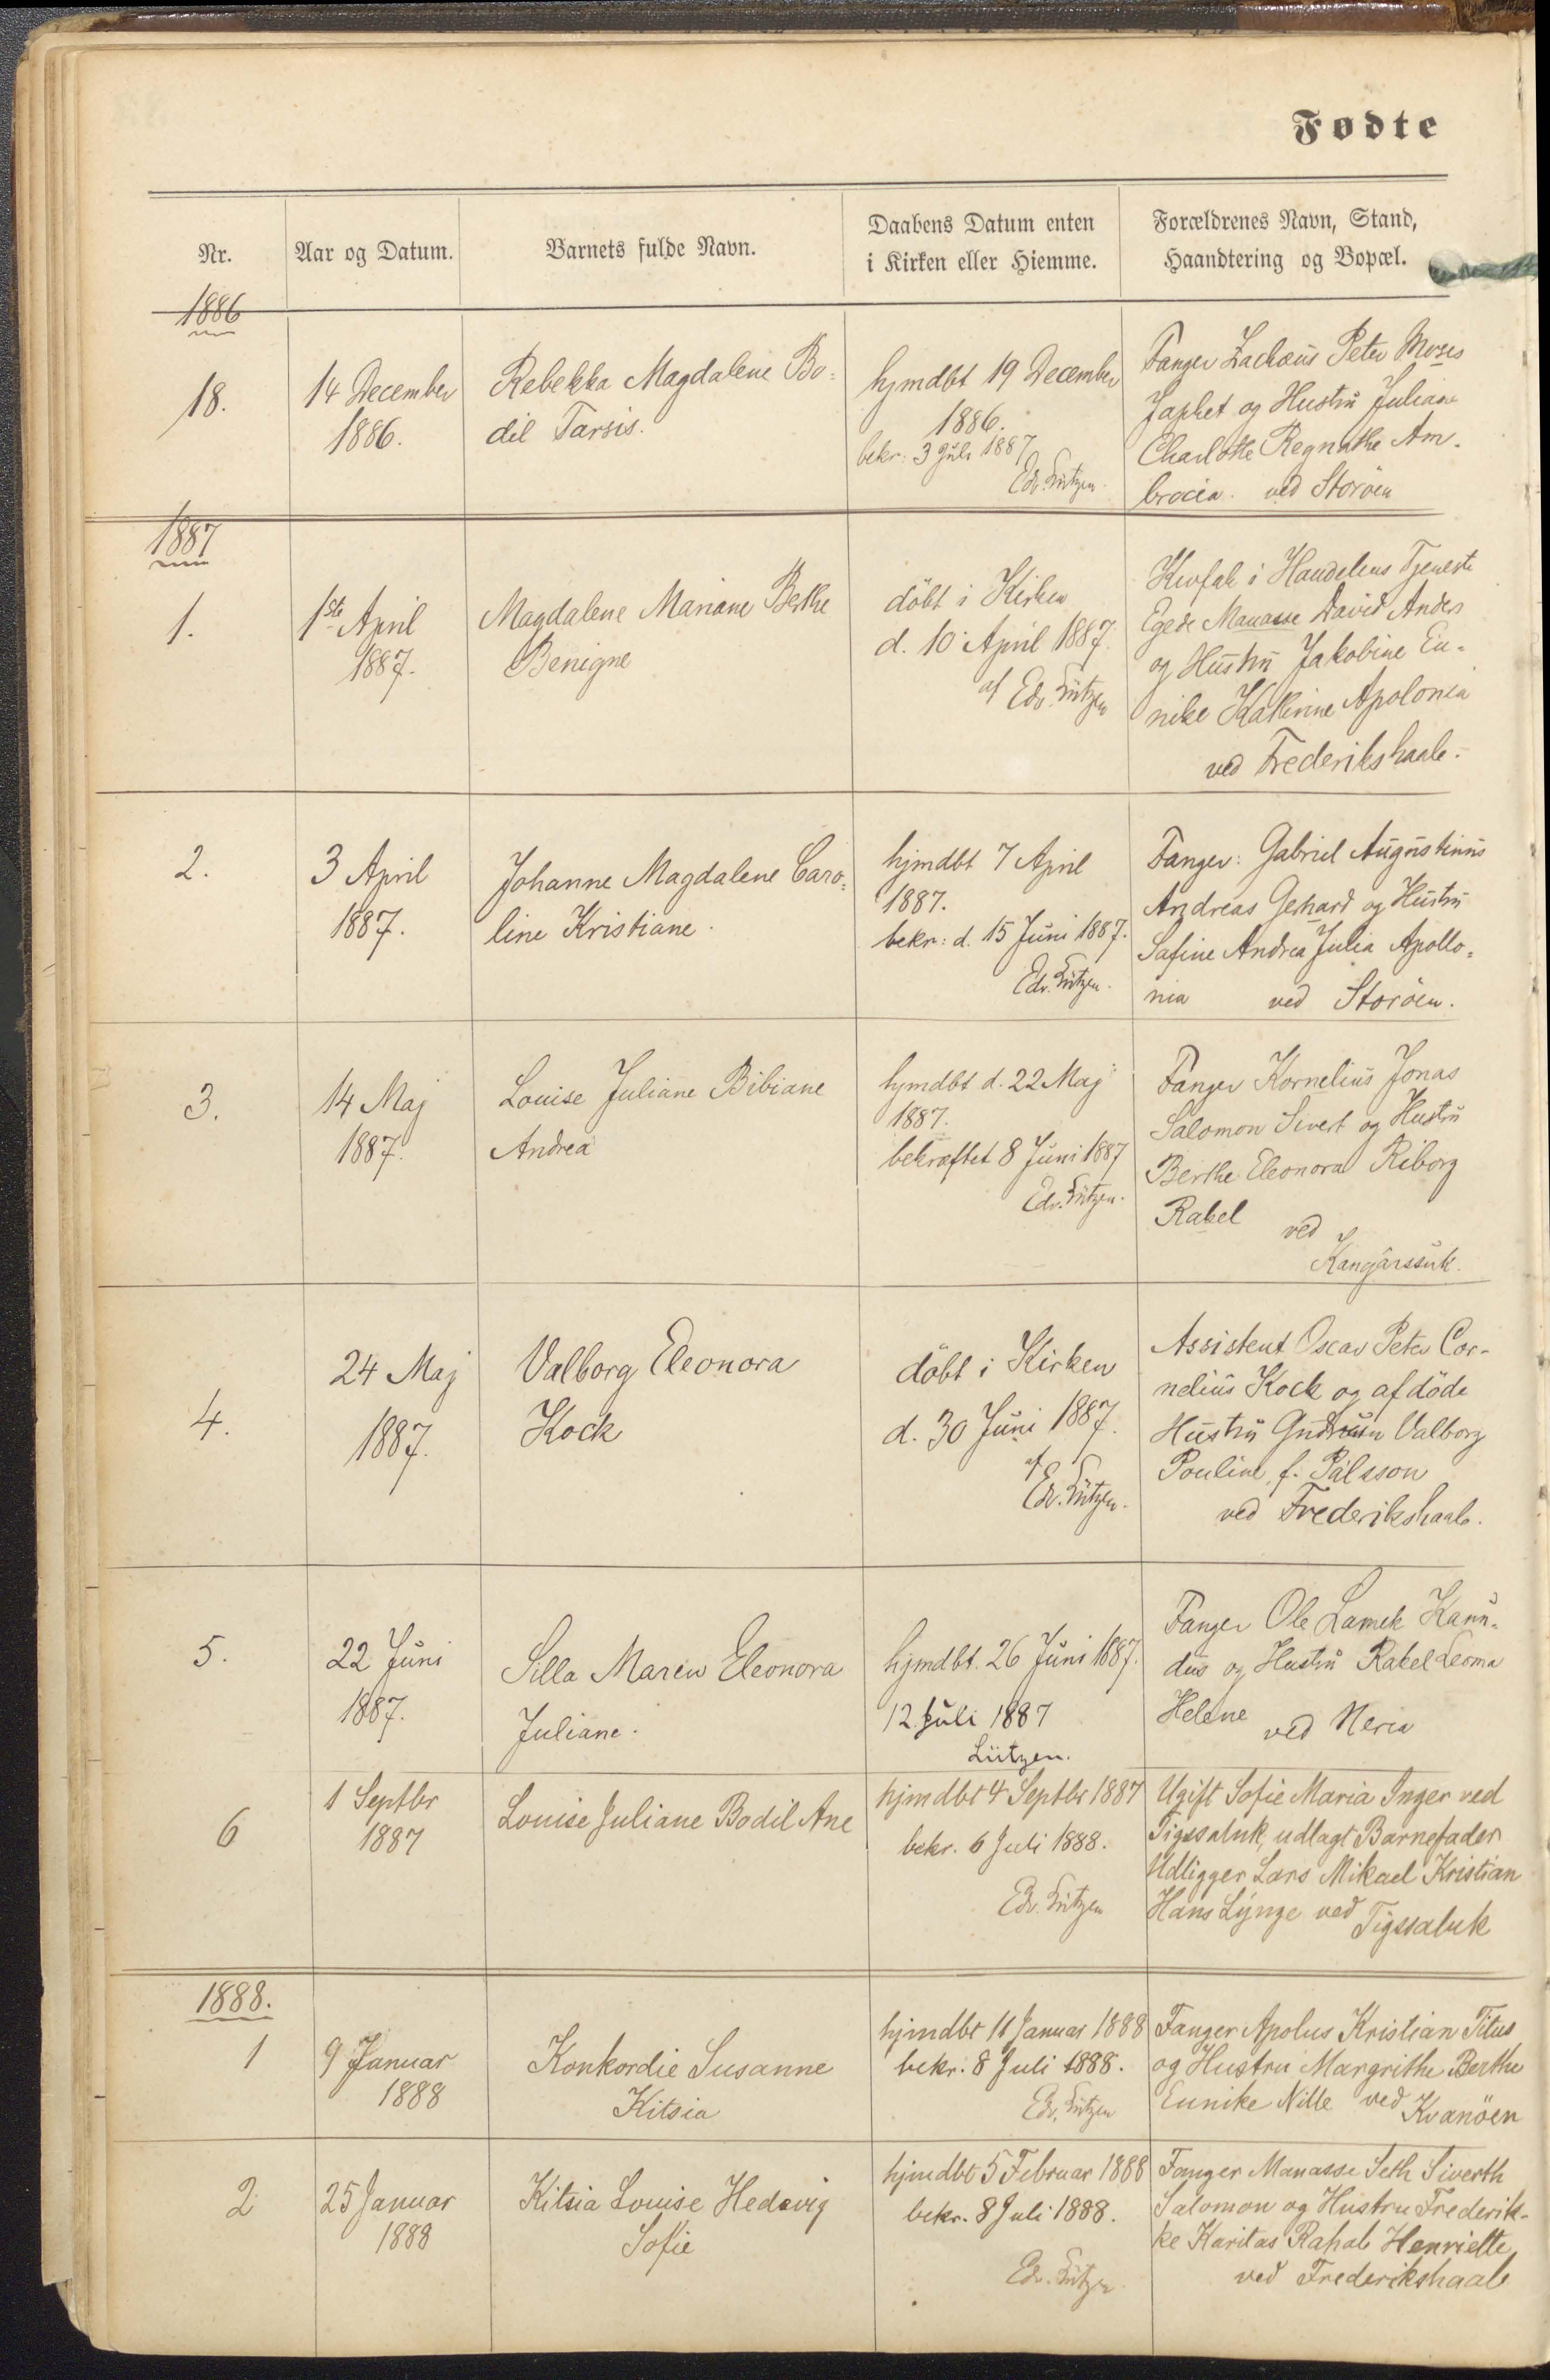 Fødte
Nr.
Aar og Datum.
Barnets fulde Navn.
Daabens Datum enten
i Kirken eller Hiemme.
Forældrenes Navn, Stand,
Haandtering og Bopæl.
1886
18.
14 December
1886.
Rebekka Magdalene Bo=
dil Tarsis.
hjmdbt 19 December
1886.
bekr: 3 Juli 1887
Edv. Lützen
Fanger Zachæus Peter Moses
Japhet og Hustru Juliane
Charlotte Regnathe Am-
brocia. ved Storöen
1887
1.
1ste April
1887.
Magdalene Mariane Berthe
Benigne
döbt i Kirken
d. 10 April 1887.
af Edv. Lützen
Kivfak i Handelens Tjeneste
Egede Manasse David Anders
og Hustru Jakobine Eu-
nike Katrine Apolonia
ved Frederikshaab.
2.
3 April
1887.
Johanne Magdalene Caro=
line Kristiane.
hjmdbt 7 April
1887.
bekr: d. 15 Juni 1887.
Edv. Lützen.
Fanger: Gabriel Augustinus
Andreas Gerhard og Hustru
Safine Andrea Julia Apollo=
nia ved Storöen.
3.
14 Maj
1887.
Louise Juliane Bibiane
Andrea
hjmdbt d. 22 Maj
1887.
bekræftet 8 Juni 1887
Edv. Lützen.
Fanger Kornelius Jonas
Salomon Sivert og Hustru
Berthe Eleonora Riborg
Rakel ved
Kangârssuk.
4.
24 Maj
1887.
Valborg Eleonora
Kock
döbt i Kirken
d. 30 Juni 1887.
af
Edv. Lützen.
Assistent Oscar Peter Cor-
nelius Kock og afdöde
Hustru Gudrun Valborg
Pouline, f. Pálsson
ved Frederikshaab.
5.
22 Juni
1887.
Silla Maren Eleonora
Juliane.
hjmdbt. 26 Juni 1887.
12 Juli 1887
Lützen.
Fanger Ole Lamek Kanu-
dus og Hustru Rakel Leoma
Helene ved Neria
6
1 Septbr
1887
Louise Juliane Bodil Ane
hjmdbt 4 Septbr 1887
bekr. 6 Juli 1888.
Edv. Lützen
Ugift Sofie Maria Inger ved
Tigssaluk, udlagt Barnefader
Udligger Lars Mikael Kristian
Hans Lynge ved Tigssaluk
1888.
1
9 Januar
1888
Konkordie Susanne
Kitsia
hjmdbt 11 Januar 1888
bekr. 8 Juli 1888.
Edv. Lützen
Fanger Apolus Kristian Titus
og Hustru Margrithe Berthe
Eunike Nille ved Kvanöen
2
25 Januar
1888
Kitsia Louise Hedevig
Sofie
hjmdbt 5 Februar 1888
bekr. 8 Juli 1888.
Edv. Lützen
Fanger Manasse Seth Siverth
Salomon og Hustru Frederik-
ke Karitas Rahab Henriette
ved Frederikshaab